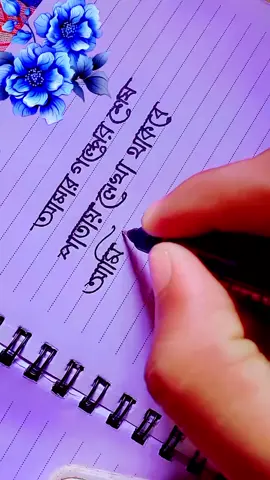 আমার গল্পের শেষ
পাতায় লেখা থাকবে
আমি